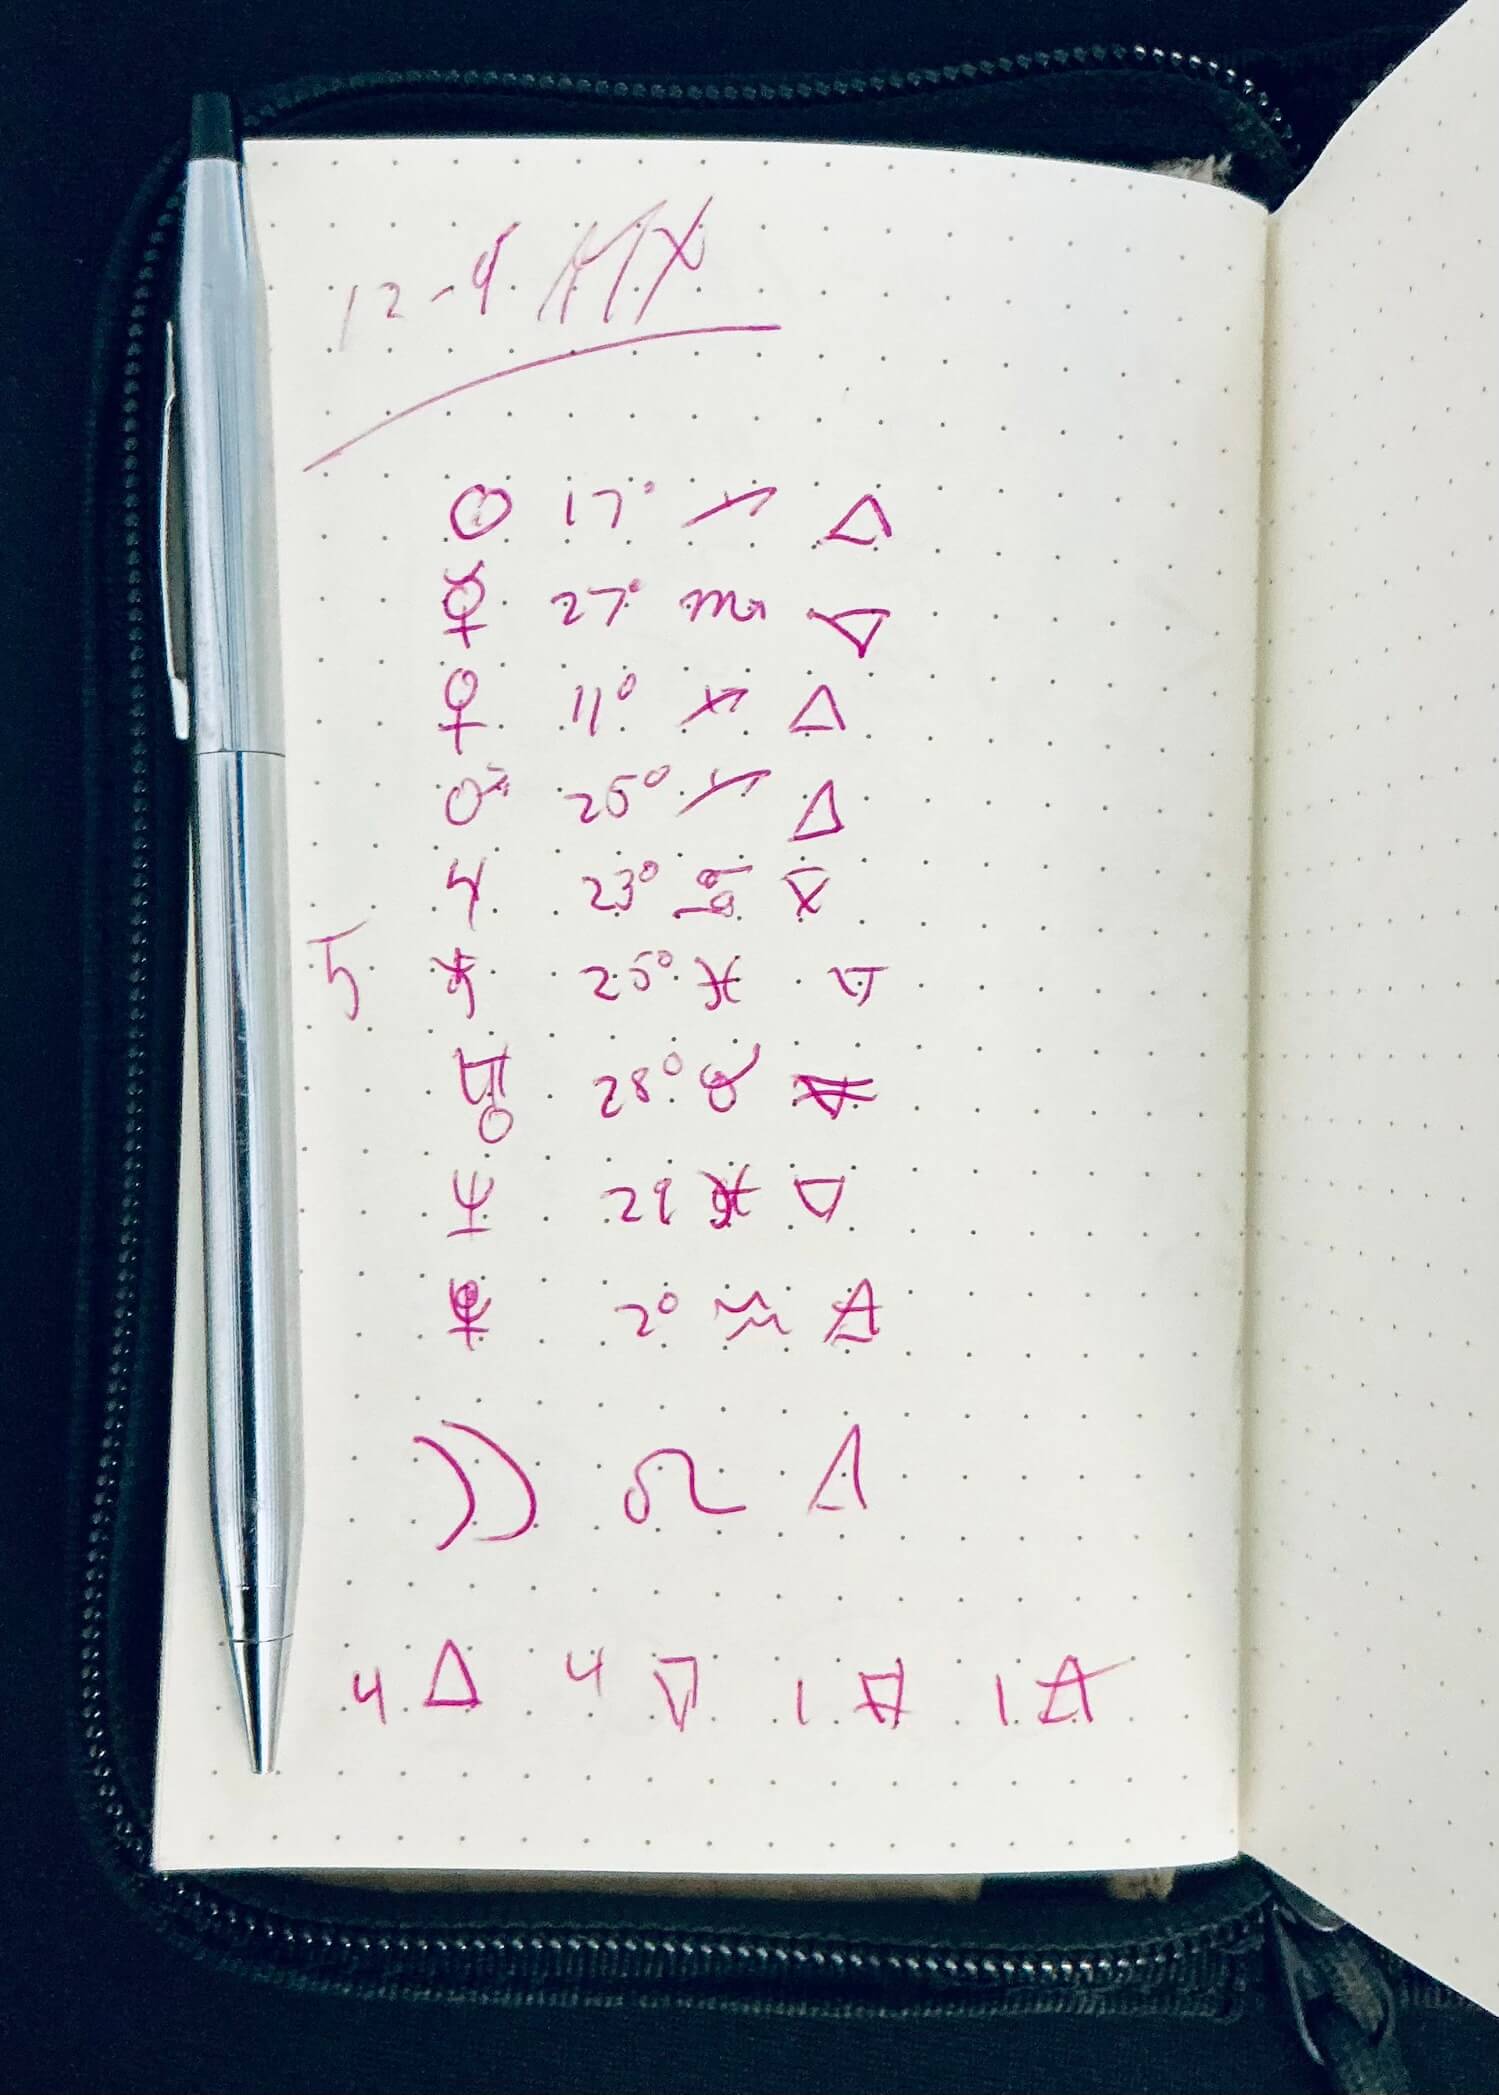 12-9 ATX
☉ 17° ♐ 🜂
☿ 27° ♏ 🜄
♀ 11° ♐ 🜂
♂ 25° ♐ 🜂
♃ 23° ♋ 🜄
♄ 25° ♓ 🜄
♅ 28° ♉ 🜃
♆ 29 ♓ 🜄
2° ♒ 🜁
☽ ♌ 🜂
4 🜂 4 🜄 1 🜃 1 🜁